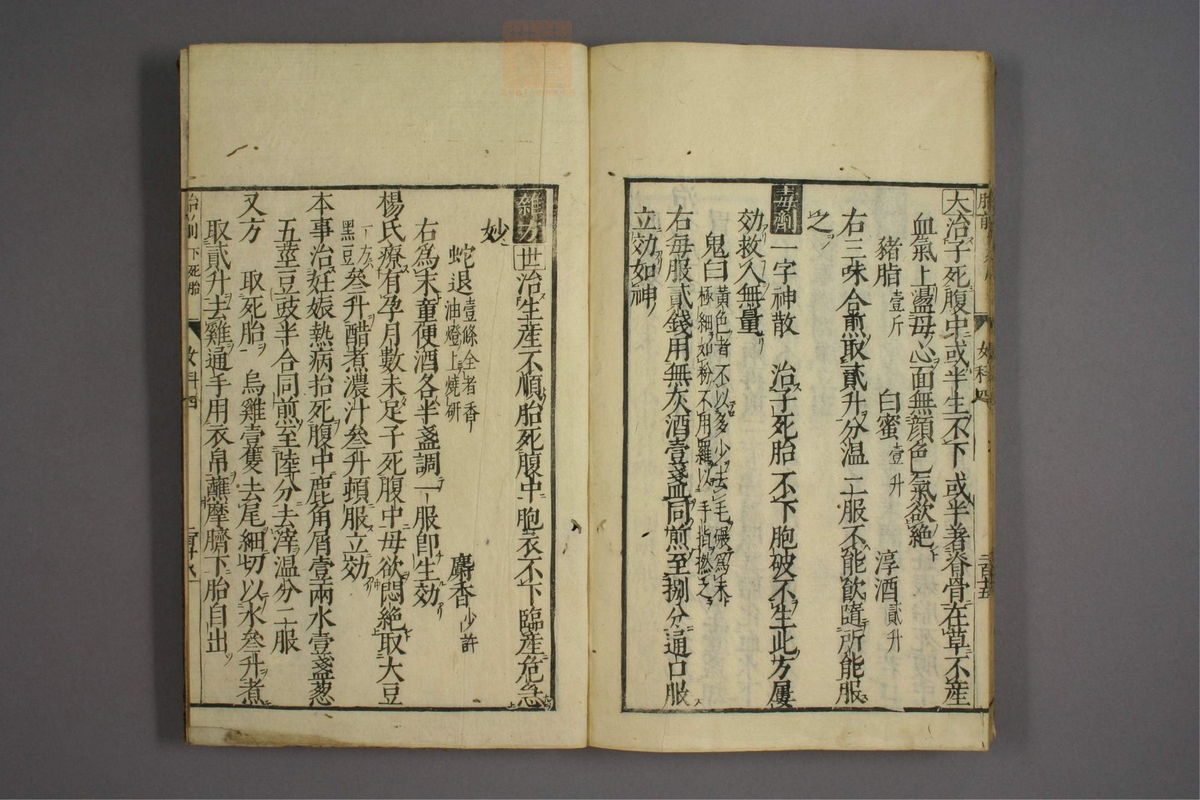 大治子死腹中或半生不下或半著脊骨在草不産
血氣上盪母心面無顔色氣欲絶
猪脂壹斤　白蜜壹升　淳酒貳升
右三味合煎取貳升分温二服不能飲隨所能服
之
毒劑一字神散　治子死胎不下胞破不生此方屢
効救人無量
鬼臼黄色者不以多少去毛碾爲末
極細如粉不用羅以手指撚之
右毎服貳錢用無灰酒壹盞同煎至捌分通口服
立効如神
女科四
雜方世治生産不順胎死腹中胞衣不下臨産危急
妙
蛇退壹條全者香
油燈上燒研　麝香少許
右爲末童便酒各半盞調一服即生効
楊氏療有孕月數未足子死腹中母欲悶絶取大豆
一方
黒豆叁升醋煮濃汁叁升頓服立効
本事治妊娠熱病胎死腹中鹿角屑壹兩水壹盞葱
五莖豆豉半合同煎至陸分去滓温分二服
又方　取死胎　烏雞壹隻去尾細切以水叁升煮
取貳升去雞通手用衣帛蘸摩臍下胎自出
下死胎
女科四